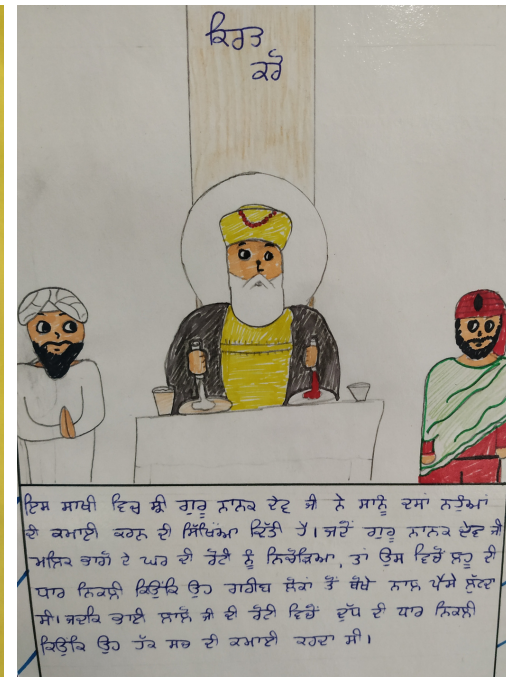 ਕਿਰਤ
ਕਰੋ
ਇਸ ਸਾਖੀ ਵਿਚ ਸ਼੍ਰੀ ਗੁਰੂ ਨਾਨਕ ਦੇਵ ਜੀ ਨੇ ਸਾਨੂੰ ਦਸਾਂ ਨਹੁੰਆਂ
ਦੀ ਕਮਾਈ ਕਰਨ ਦੀ ਸਿੱਖਿਆ ਦਿੱਤੀ ਹੈ। ਜਦੋਂ ਗੁਰੂ ਨਾਨਕ ਦੇਵ ਜੀ
ਮਲਿਕ ਭਾਗੋ ਦੇ ਘਰ ਦੀ ਰੋਟੀ ਨੂੰ ਨਿਚੋੜਿਆ, ਤਾਂ ਉਸ ਵਿਚੋਂ ਲਹੂ ਦੀ
ਧਾਰ ਨਿਕਲੀ ਕਿਉਂਕਿ ਉਹ ਗਰੀਬ ਲੋਕਾਂ ਤੋਂ ਧੋਖੇ ਨਾਲ ਪੈਸੇ ਲੁੱਟਦਾ
ਸੀ। ਜਦਕਿ ਭਾਈ ਲਾਲੋ ਜੀ ਦੀ ਰੋਟੀ ਵਿਚੋਂ ਦੁੱਧ ਦੀ ਧਾਰ ਨਿਕਲੀ
ਕਿਉਂਕਿ ਉਹ ਹੱਕ ਸਚ ਦੀ ਕਮਾਈ ਕਰਦਾ ਸੀ।